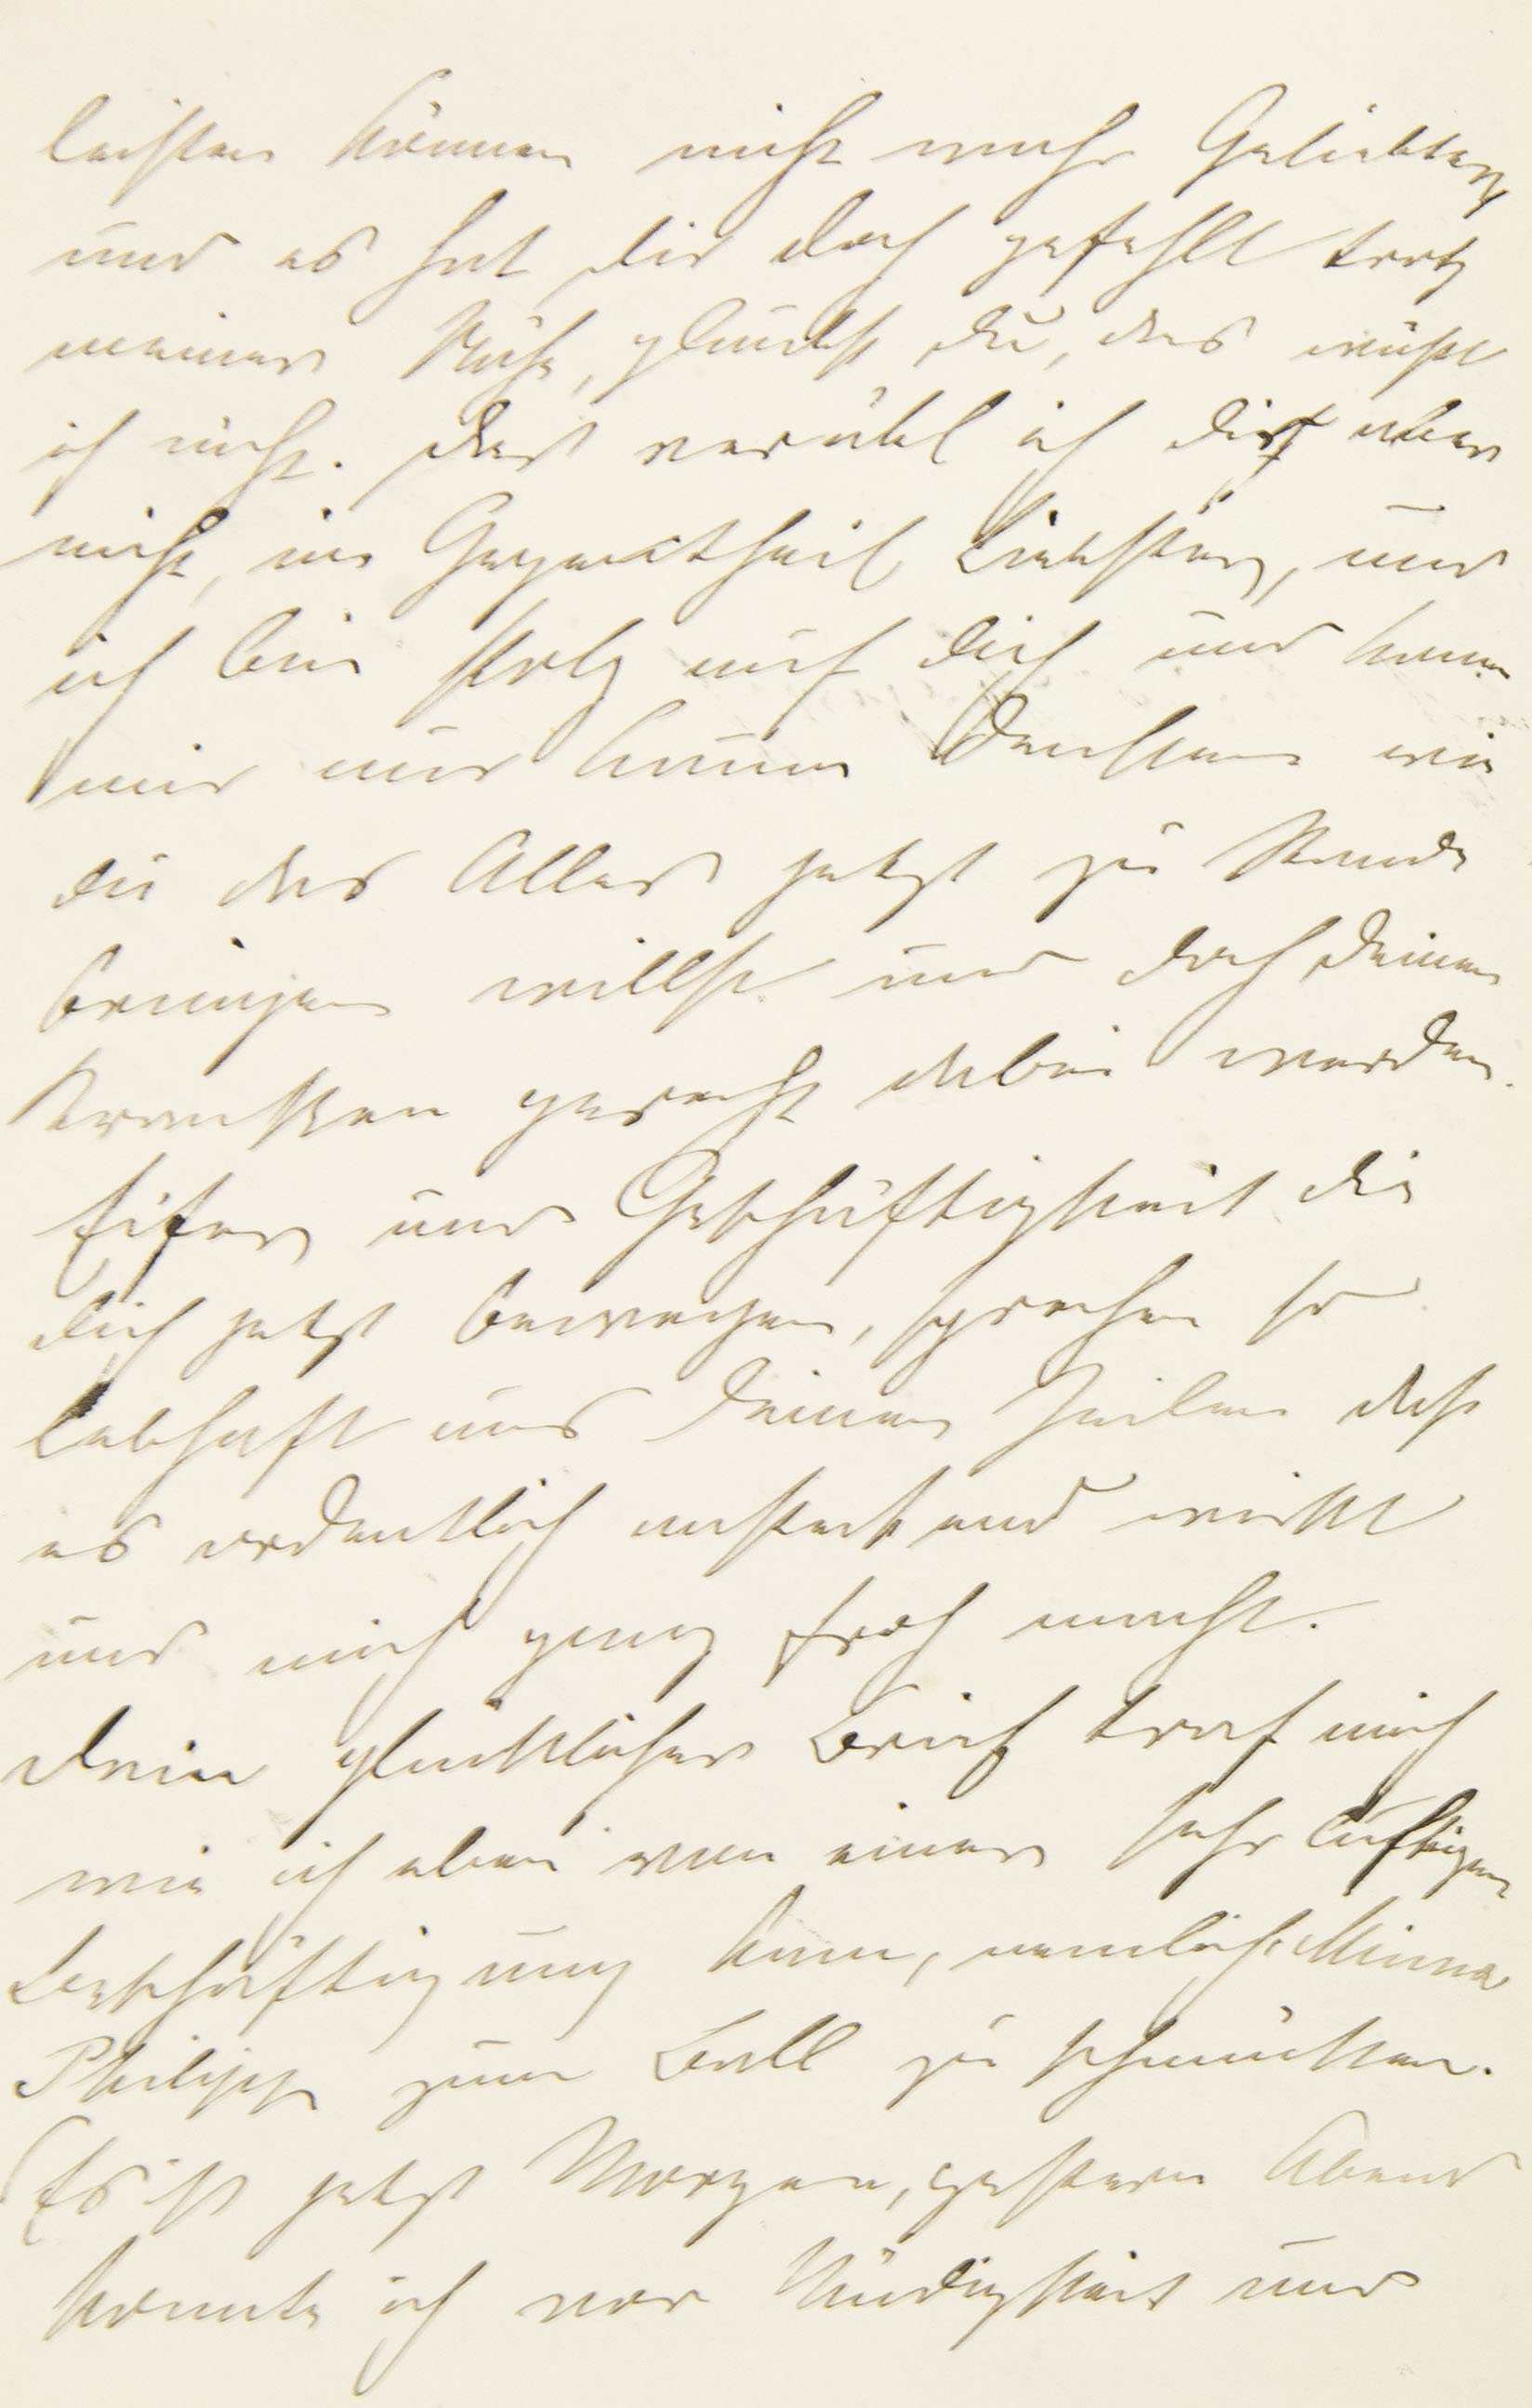 leisten können nicht wahr Geliebter,
und es hat dir doch gefehlt trotz
meiner Nähe, glaubst du, das wüßte
ich nicht. Das verübel ich dir aber
nicht, im Gegentheil Liebster, und
ich bin stolz auf dich und kann
mir nur kaum denken wie
du das Alles jetzt zu Stande
bringen willst und doch deinen
Kranken gerecht dabei werden.
Eifer und Geschäftigkeit die
dich jetzt bewegen, sprechen so
lebhaft aus deinen Zeilen daß
es ordentlich ansteckend wirkt
und mich ganz froh macht.
Dein glücklicher Brief traf mich
wie ich eben von einer sehr luftigen
Beschäftigung kam, nemlich Minna
Philipp zum Ball zu schmücken.
Es ist jetzt Morgen, gestern Abend
konnte ich vor Müdigkeit und